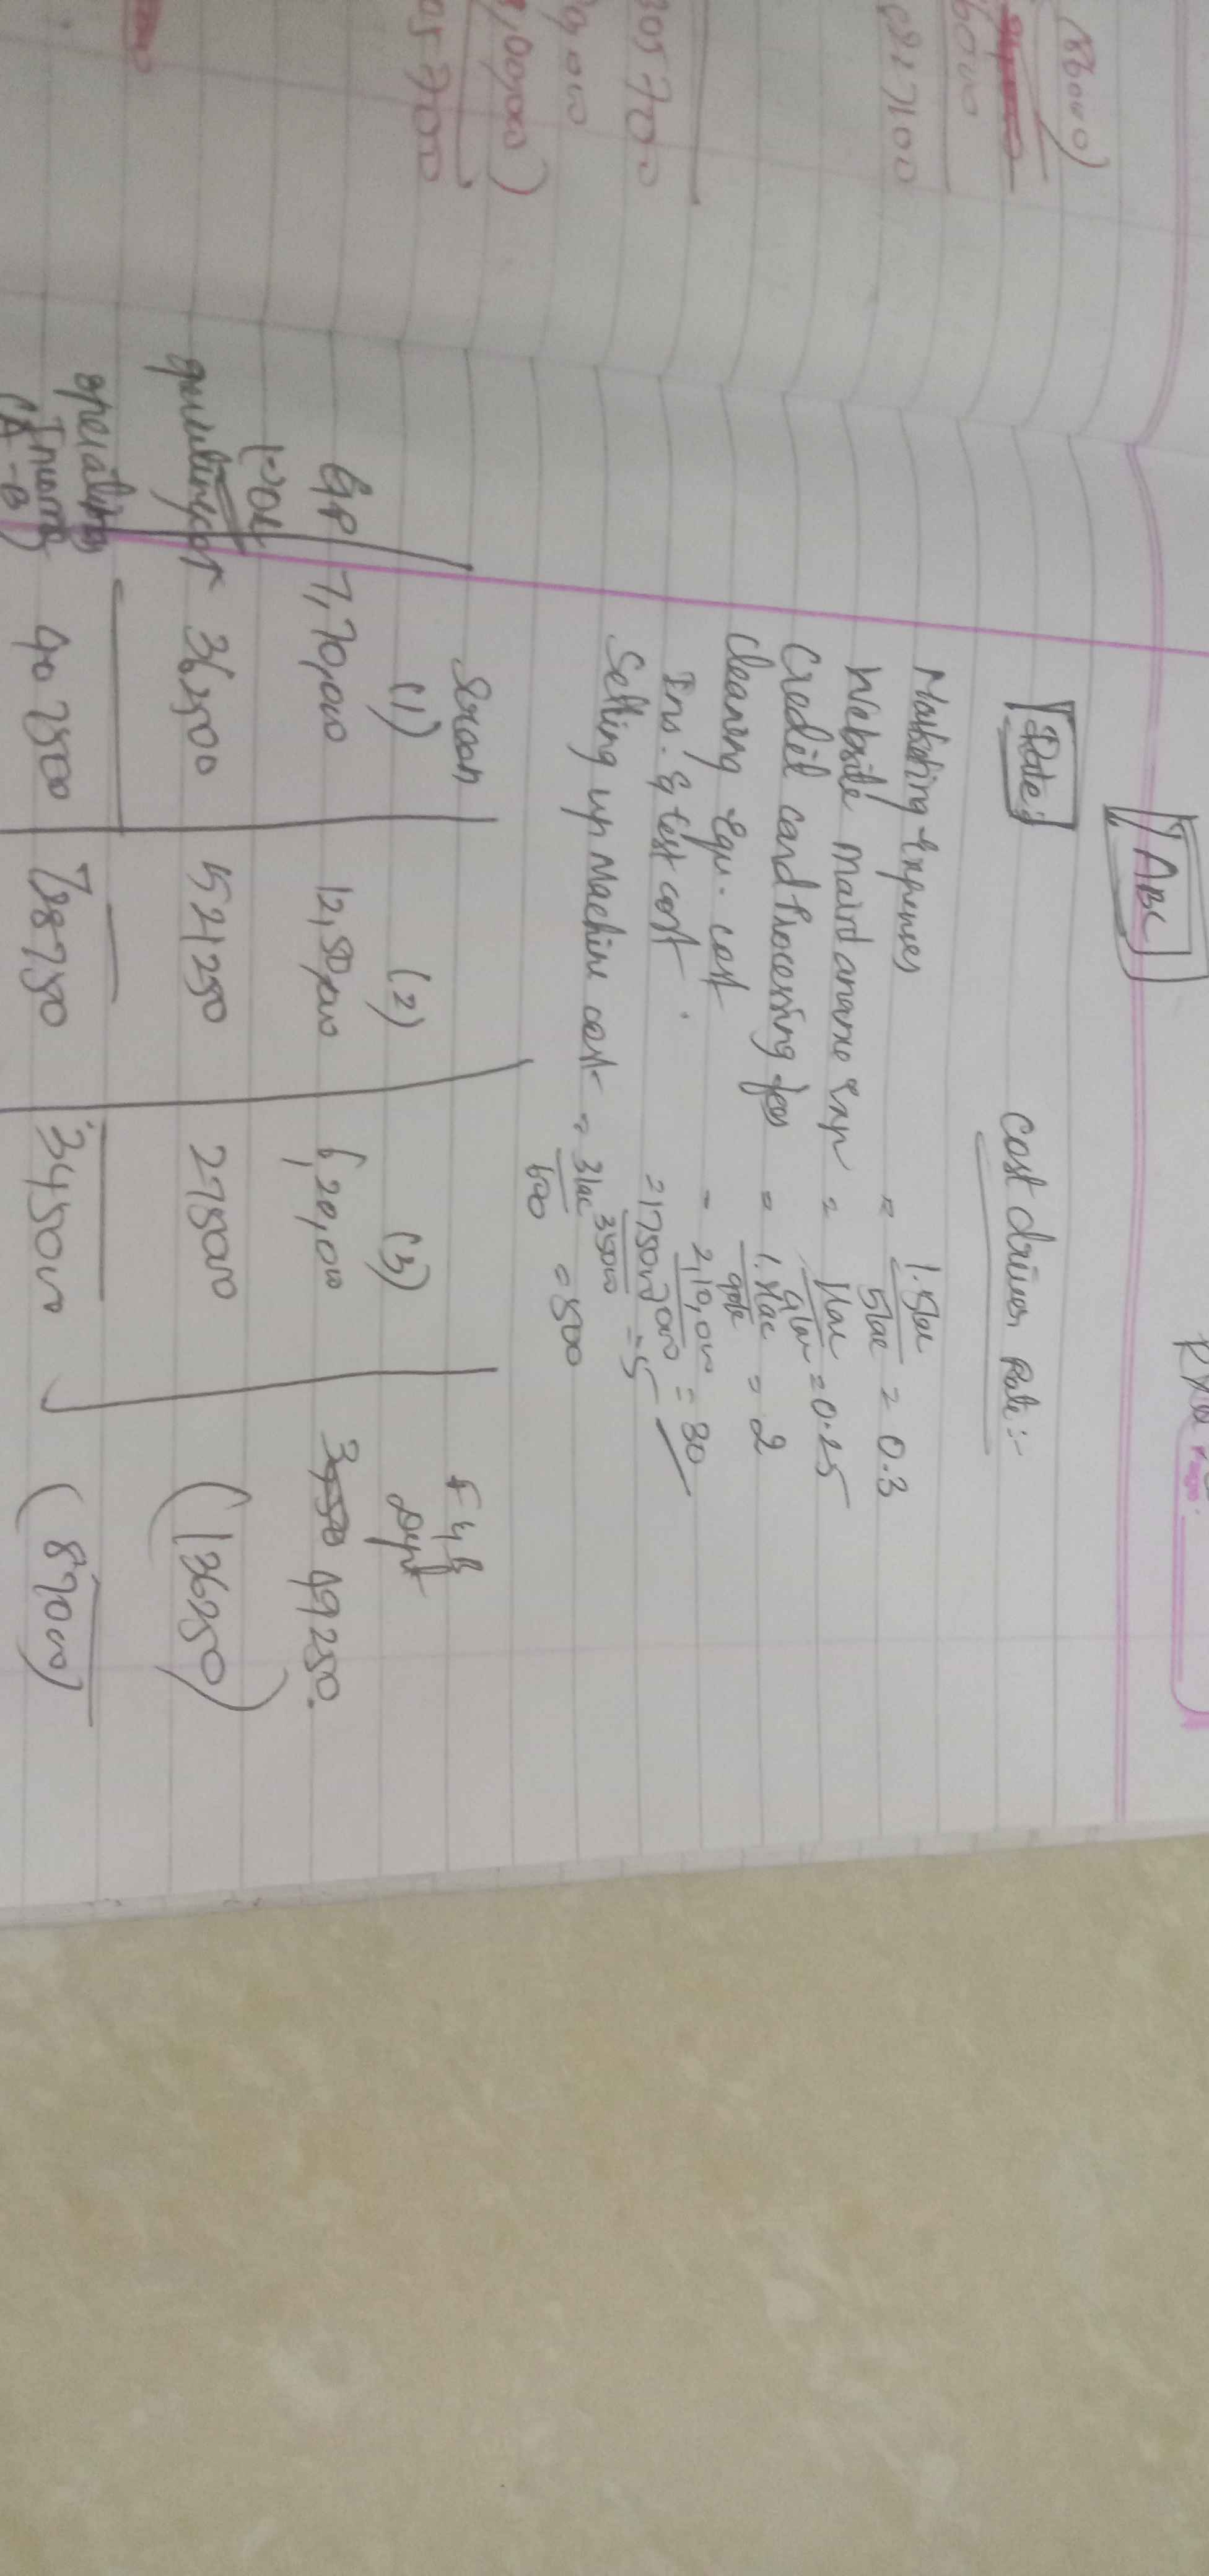 ABC
Rate:
Cost driver Rate:-
Marketing expenses = 1.5lac / 5lac = 0.3
Website maintanance exp = 1lac / 4lac = 0.25
Credit card Processing fees = 1.8lac / 90k = 2
Cleaning Equ. cost = 2,10,000 / 7000 = 30
Ins. & test cost. 175000 / 35000 = 5
Setting up Machine cost = 3lac / 600 = 500
Screen F & B
(1) (2) (3) dept
GP 7,70,000 12,50,000 6,20,000 49250.
36,2500 521250 275000 (136250)
operating
Income 407500 728750 345000 (87000)
(A-B)
305700
05700